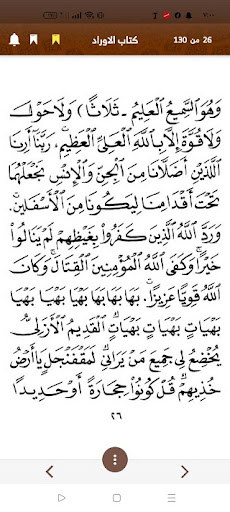 ٧:٠٠
26 من 130
كتاب الاوراد
وَهُوَ السَّمِيعُ الْعَلِيمُ ـ ثَلَاثًا) وَلَا حَوْلَ
وَلَا قُوَّةَ إِلَّا بِاللَّهِ الْعَلِيِّ الْعَظِيمِ، رَبَّنَا أَرِنَا
اللَّذَيْنِ أَضَلَّانَا مِنَ الْجِنِّ وَالْإِنْسِ نَجْعَلْهُمَا
تَحْتَ أَقْدَامِنَا لِيَكُونَا مِنَ الْأَسْفَلِينَ.
وَرَدَّ اللَّهُ الَّذِينَ كَفَرُوا بِغَيْظِهِمْ لَمْ يَنَالُوا
خَيْرًا وَكَفَى اللَّهُ الْمُؤْمِنِينَ الْقِتَالَ وَكَانَ
اللَّهُ قَوِيًّا عَزِيزًا. بَهَا بَهَا بَهَيَا بَهْيَا بَهَيَا
بَهَيَاتٍ بَهَيَاتٍ بَهَيَاتٍ الْقَدِيمُ الْأَزَلِيُّ
يُخْضِعُ لِي جَمِيعَ مَنْ يَرَانِي لَمَقْفَنْجَلٍ يَا أَرْضُ
خُذِيهِمْ قُلْ كُونُوا حِجَارَةً أَوْ حَدِيدًا
٢٦